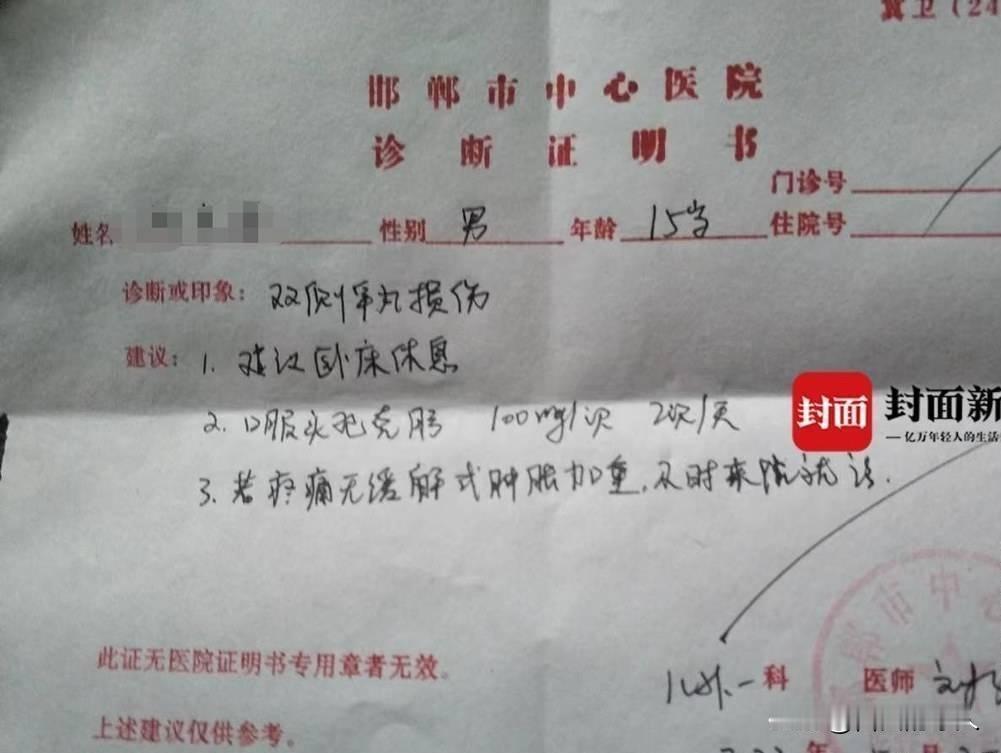 冀卫(24
邯郸市中心医院
诊断证明书
门诊号
姓名 性别 男 年龄 15岁 住院号
诊断或印象: 双侧睾丸损伤
建议: 1. 建议卧床休息
2. 口服头孢克肟 100mg/次 2次/天
封面 封面新
—亿万年轻人的生活
3. 若疼痛无缓解或肿胀加重,及时来院就诊.
邯郸市中心
此证无医院证明书专用章者无效。
儿外一科 医师
上述建议仅供参考。